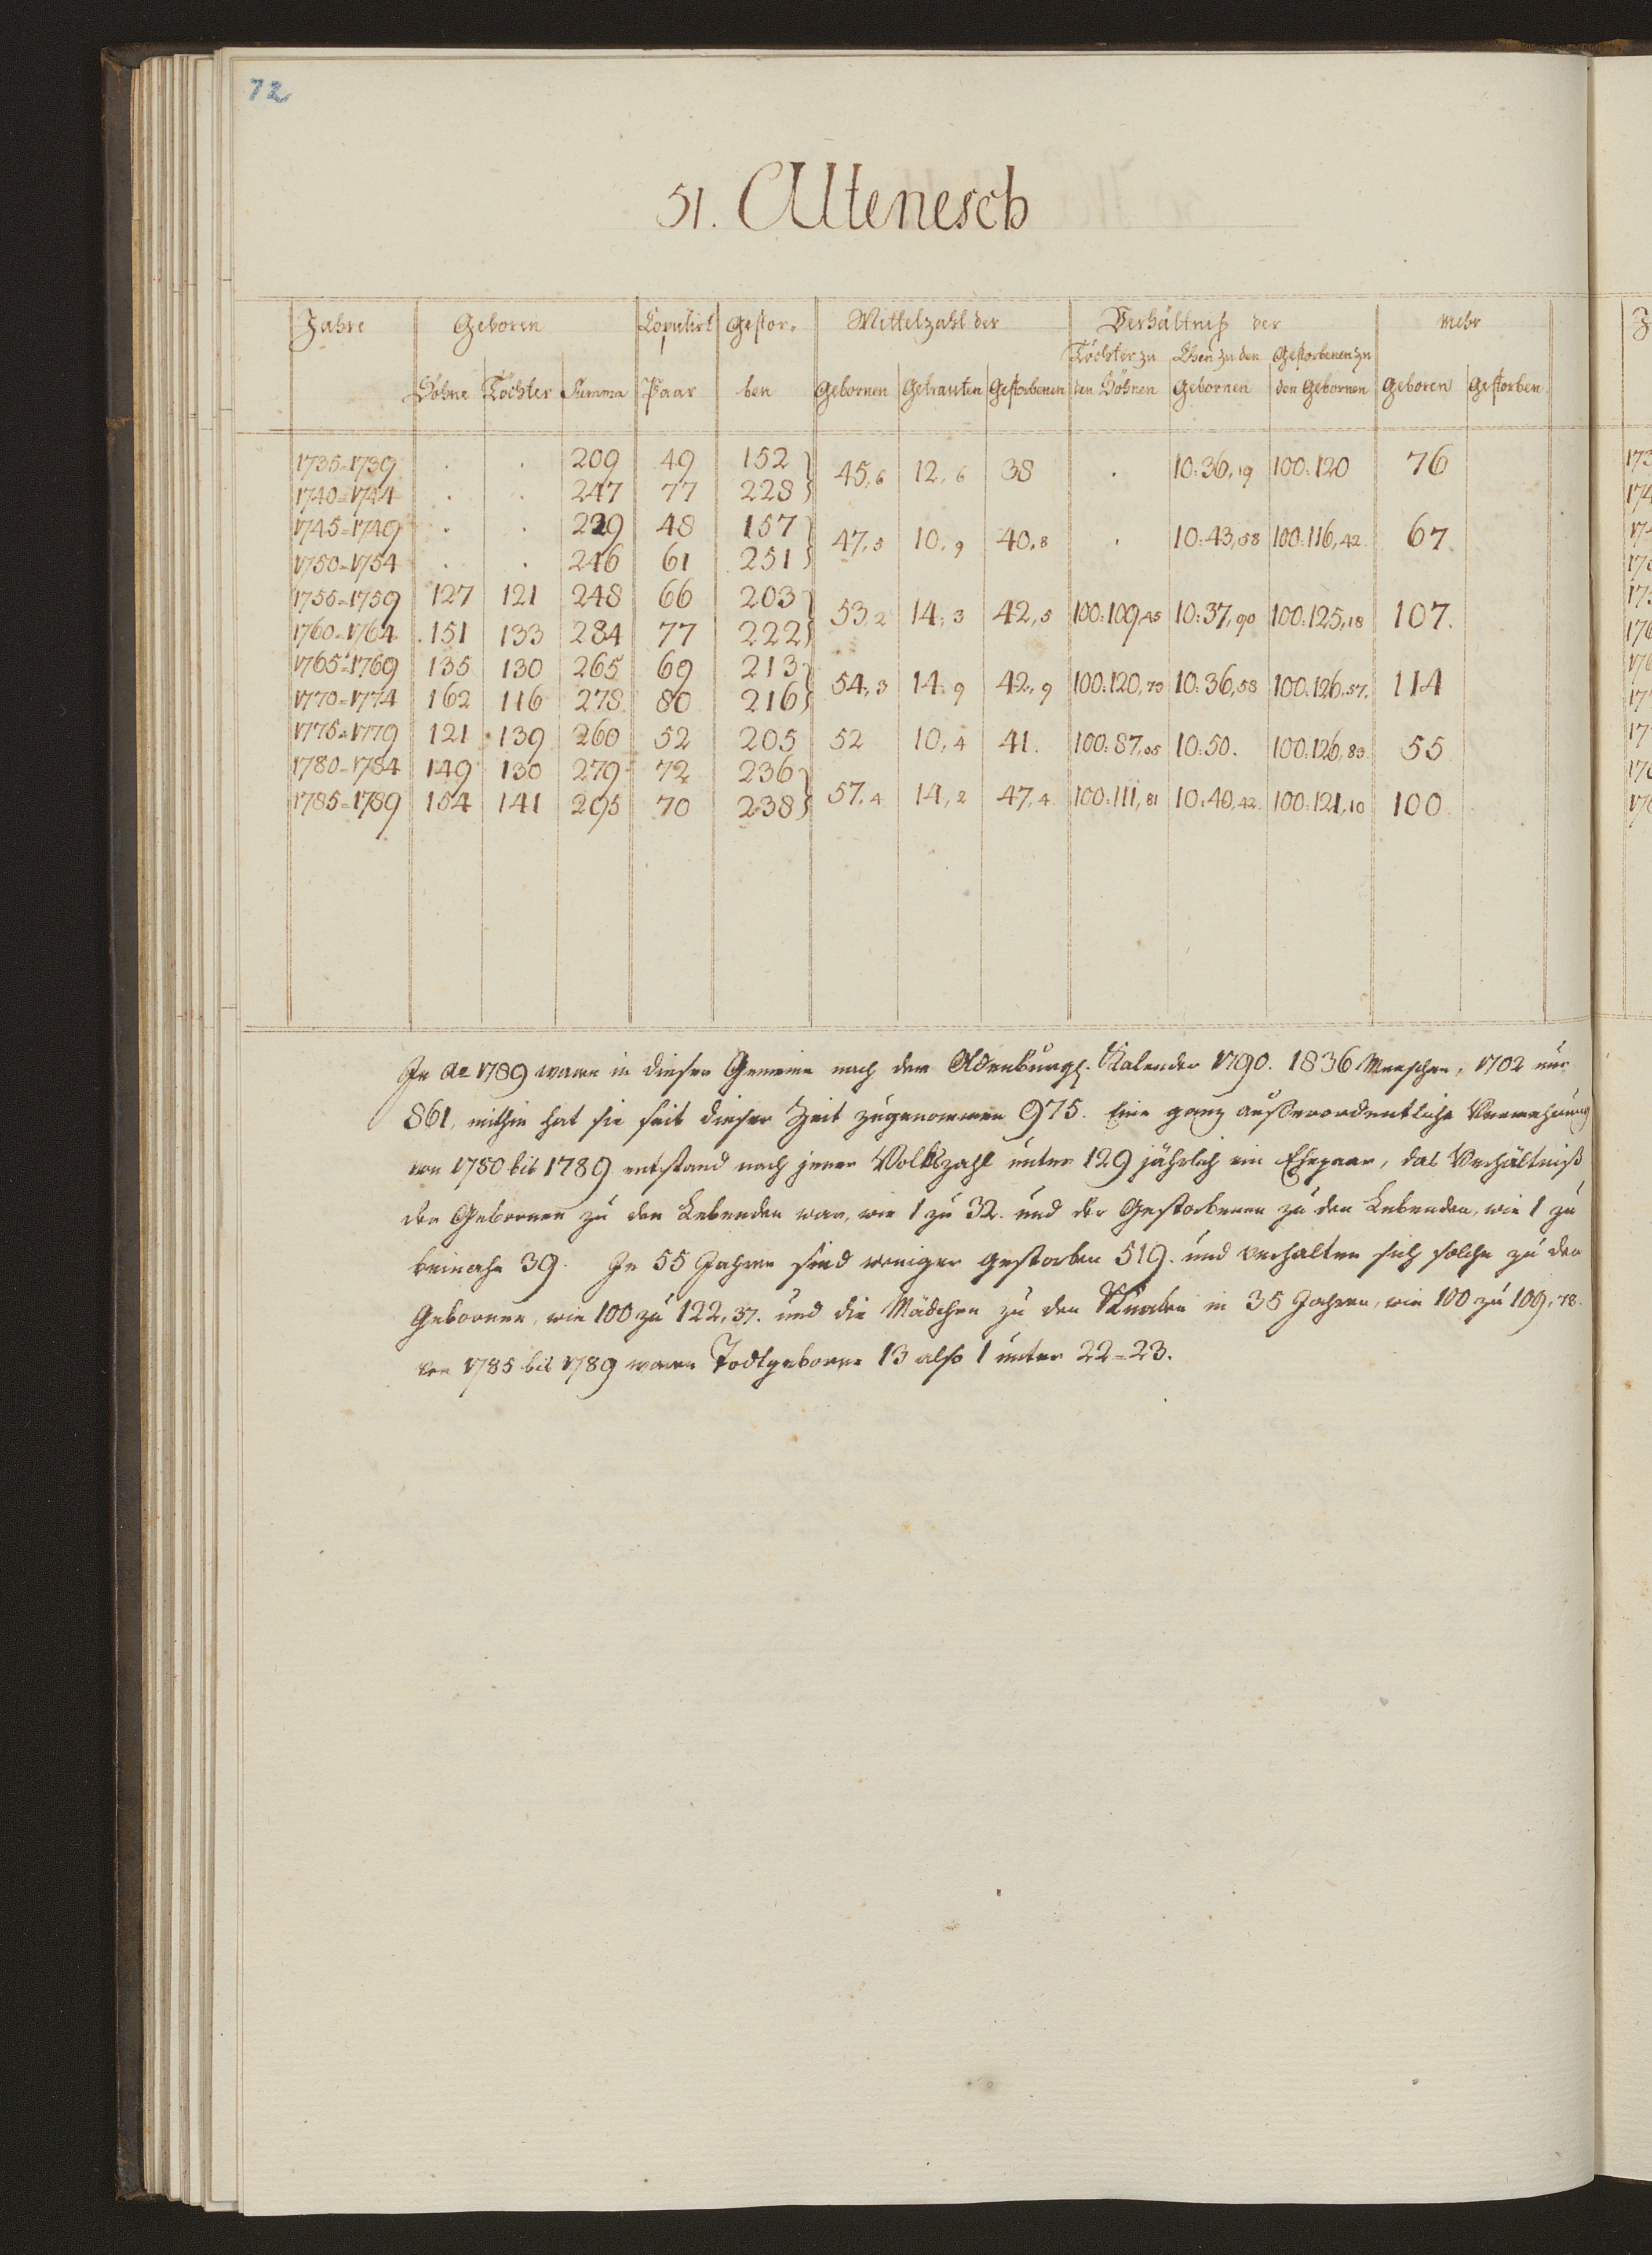 72
51. Altenesch
Jahre Geboren Copulirt Gestor= Mittelzahl der Verhältniß der Mehr
Töchter zu Ehen zu den Gestorbenen zu
Söhne Töchter Summa Paar ben Gebornen Getrauten Gestorbenen den Söhnen Gebornen den Gebornen Geboren Gestorben
1735=1739 . . 209 49 152 45,6 12,6 38 . 10:36,19 100:120 76
1740=1744 . . 247 77 228
1745=1749 . . 229 48 157 47,5 10,9 40,8 . 10:43,58 100:116,42 67
1750=1754 . . 246 61 251
1755=1759 127 121 248 66 203 53,2 14,3 42,5 100:109,45 10:37,90 100:125,18 107.
1760=1764 151 133 284 77 222
1765=1769 135 130 265 69 213 54,3 14,9 42,9 100:120,73 10:36,58 100:126,57. 114
1770=1774 162 116 278 80 216
1775=1779 121 139 260 52 205 52 10,4 41. 100:87,05 10:50. 100:126,83 55
1780=1784 149 130 279 72 236 57,4 14,2 47,4 100:111,81 10:40,42 100:121,10 100
1785=1789 154 141 295 70 238
In ao 1789 waren in dieser Gemeine nach dem Oldenburg. Kalender 1790. 1836 Menschen, 1702 nur
861, mithin hat sie seit dieser Zeit zugenommen 975. Eine ganz außerordentliche Vermehrung
von 1780 bis 1789 entstand nach jener Volkszahl unter 129 jährlich ein Ehepaar, das Verhältniß
der Gebornen zu den Lebenden war, wie 1 zu 32. und der Gestorbenen zu den Lebenden, wie 1 zu
beinahe 39. In 55 Jahren sind weniger gestorben 519. und verhalten sich solche zu den
Gebornen, wie 100 zu 122,37. und die Mädchen zu den Knaben in 35 Jahren, wie 100 zu 109,78.
von 1785 bis 1789 waren Todtgeborne 13 also 1 unter 22=23.